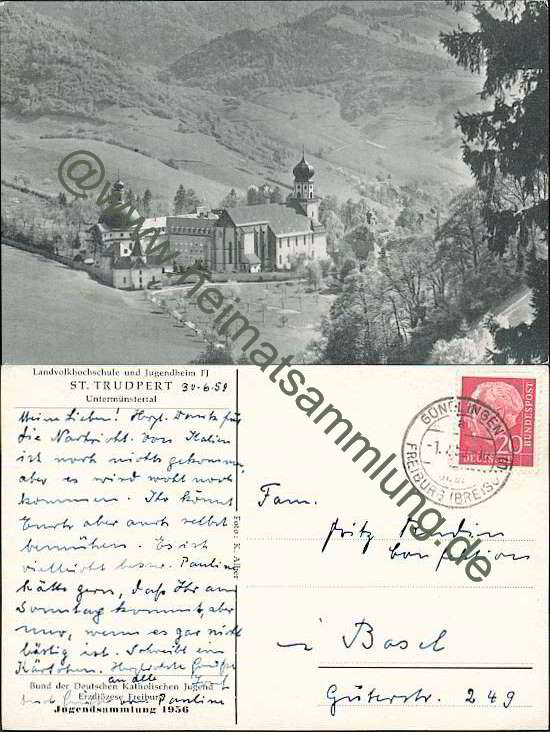 @www.heimatsammlung.de
Landvolkhochschule und Jugendheim FJ
ST. TRUDPERT 30.6.59
Untermünstertal
Meine Lieben! Herzl. Dank für
die Nachricht. Von Italien
ist noch nichts gekommen,
aber es wird wohl noch
kommen. Ihr könnt
Euch aber auch selbst
bemühen. Es ist
vielleicht besser. Pauline
hätte gern, daß Ihr am
Sonntag kommt, aber
nur, wenn es gar nicht
lästig ist. Schreibt ein
Kärtchen. Herzlichste Grüße
an alle
Bund der Deutschen Katholischen Jugend
Erzdiözese Freiburg
und Grüße von Pauline
Jugendsammlung 1956
Foto: K. Alber
GÜNDLINGEN
FREIBURG (BREISG)
20
DEUTSCHE
BUNDESPOST
Fam.
Fritz
in Basel
Güterstr. 249